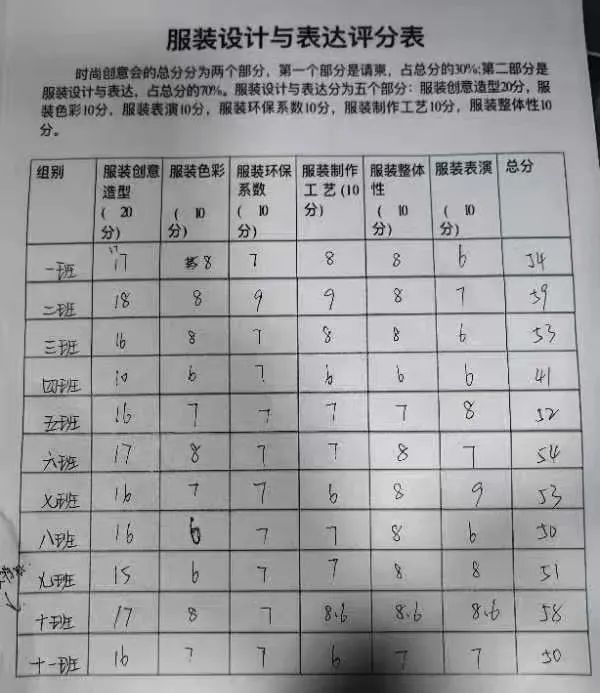 服装设计与表达评分表
时尚创意会的总分分为两个部分，第一个部分是请柬，占总分的30%;第二部分是
服装设计与表达，占总分的70%。服装设计与表达分为五个部分：服装创意造型20分，服
装色彩10分，服装表演10分，服装环保系数10分，服装制作工艺10分，服装整体性10
分。
组别 服装创意造型(20分) 服装色彩(10分) 服装环保系数(10分) 服装制作工艺(10分) 服装整体性(10分) 服装表演(10分) 总分
一班 17 8 7 8 8 6 54
二班 18 8 9 9 8 7 59
三班 16 8 7 8 8 6 53
四班 10 6 7 6 6 6 41
五班 16 7 7 7 7 8 52
六班 17 8 7 7 8 7 54
七班 16 7 7 6 8 9 53
八班 16 6 7 7 8 6 50
九班 15 6 7 7 8 8 51
十班 17 8 7 8.6 8.6 8.6 58
十一班 16 7 7 6 7 7 50